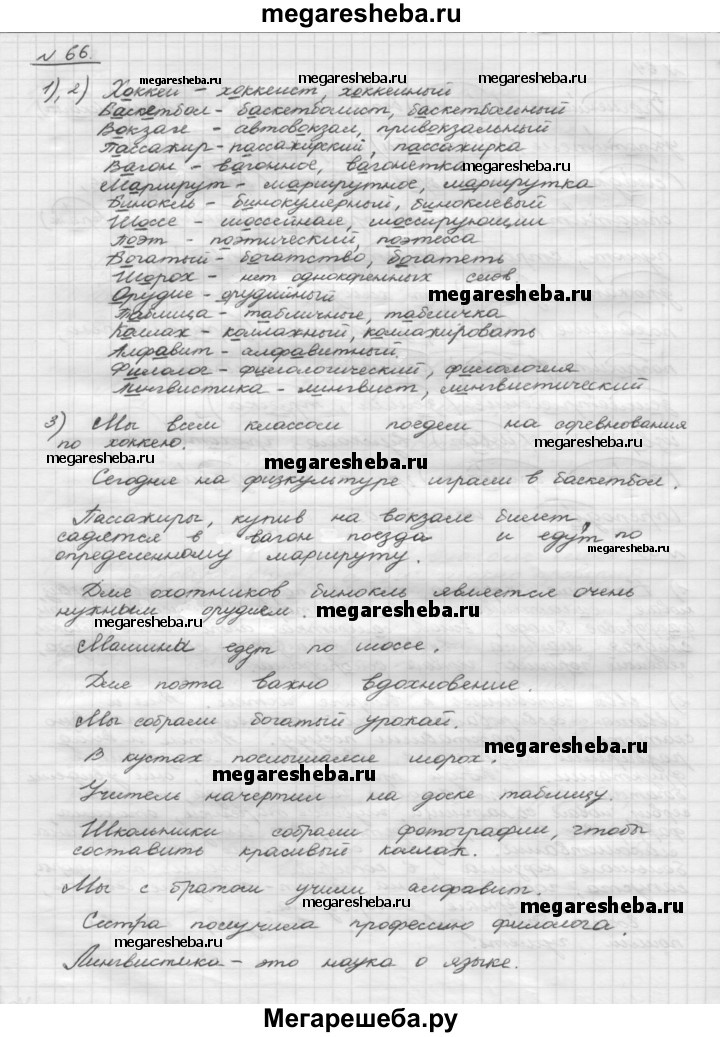 megaresheba.ru
№ 66.
1), 2) Хоккей – хоккеист, хоккейный
megaresheba.ru megaresheba.ru
Баскетбол – баскетболист, баскетбольный
Вокзал – автовокзал, привокзальный
Пассажир – пассажирский, пассажирка
Вагон – вагонное, вагонетка megaresheba.ru
Маршрут – маршрутное, маршрутка
Бинокль – бинокулярный, биноклевый
Шоссе – шоссейная, шоссирующии
Поэт – поэтический, поэтесса
Богатый – богатство, богатеть
Шорох – нет однокоренных слов
Орудие – орудийный megaresheba.ru
Таблица – табличные, табличка
Коллаж – коллажный, коллажировать
Алфавит – алфавитный.
Филолог – филологический, филология
Лингвистика – лингвист, лингвистический
3) Мы всем классом поедем на соревнования
по хоккею. megaresheba.ru
megaresheba.ru megaresheba.ru
Сегодня на физкультуре играли в баскетбол.
Пассажиры, купив на вокзале билет,
садятся в вагон поезда и едут по
определенному маршруту. megaresheba.ru
Для охотников бинокль является очень
нужным орудием. megaresheba.ru
megaresheba.ru
Машины едут по шоссе.
Для поэта важно вдохновение.
Мы собрали богатый урожай.
В кустах послышался шорох. megaresheba.ru
megaresheba.ru
Учитель начертил на доске таблицу.
Школьники собрали фотографии, чтобы
составить красивый коллаж.
Мы с братом учили алфавит.
megaresheba.ru
Сестра получила профессию филолога.
megaresheba.ru megaresheba.ru
Лингвистика – это наука о языке.
Мегарешеба.ру